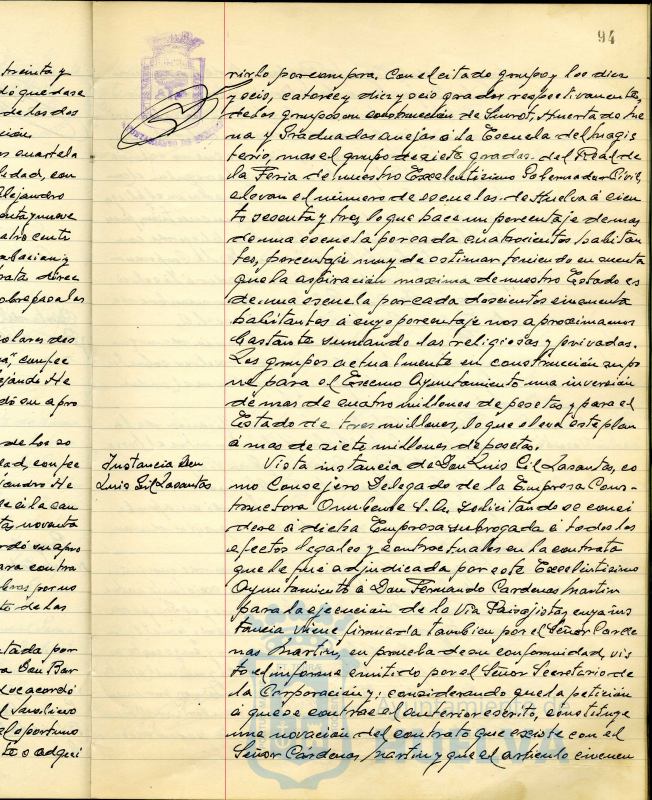 94
rirlo por compra. Con el citado grupo y los diez
y ocio, catorce y diez y ocio grados respectivamente,
de los grupos en construcción de Huerta de Me
na y Graduadas anejas á la Escuela del Magis
terio, mas el grupo de siete grados del Real de
la Feria de nuestro Excelentisimo Gobernador Civil
elevan el número de escuelas de Huelva á cien
to sesenta y tres, lo que hace un porcentaje de mas
de una escuela por cada cuatrocientos habitan
tes, porcentaje muy de estimar teniendo en cuenta
que la aspiración maxima de nuestro Estado es
de una escuela por cada doscientos cincuenta
habitantes á cuyo porcentaje nos aproximamos
bastante sumando las religiosas y privadas.
Los grupos actualmente en construcción supo
ne para el Excmo Ayuntamiento una inversión
de mas de cuatro millones de pesetas y para el
Estado de tres millones, lo que eleva este plan
á mas de siete millones de pesetas.
Instancia Don
Luis Gil Lasantas
Vista instancia de Don Luis Gil Lasantas, co
mo Consejero Delegado de la Empresa Cons-
tructora Onubense S.A. solicitando se consi
dere á dicha Empresa subrogada á todos los
efectos legales y contractuales en la contrata
que le fué adjudicada por este Excelentisimo
Ayuntamiento á Don Fernando Cardenas Martin
para la ejecución de la Via Paisajista, cuya ins
tancia viene firmada tambien por el Señor Carde
nas Martin, en prueba de su conformidad, vis
to el informe emitido por el Señor Secretario de
la Corporación y; considerando que la petición
á que se contrae el anterior escrito, constituye
una novación del contrato que existe con el
Señor Cardenas Martin y que el articulo cincuen
treinta y
dó quedase
de los dos
ción
cuartela
lidad, con
Alejandro
enta y nueve
atro centi
balacion y
rata direc
obrepasa los
olares des
confec
ejandro He
dó su apro
de los so
dad, confec
jandro He
de á la can
ta, noventa
ordó su apro
ara contra
bras por no
to de las
tada por
Don Bar
se acordó
el oportuno
to o adqui
Ayuntamiento de
HUELVA